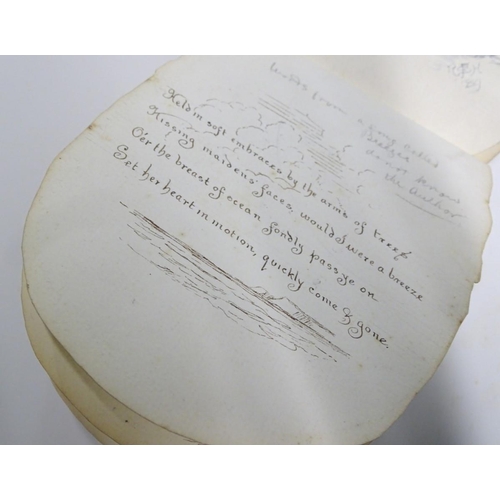 Words from a song called
Breezes
do not know
the author
Held in soft embraces by the arms of trees
Kissing maidens' faces, would I were a breeze
O'er the breast of ocean fondly pass ye on
Set her heart in motion, quickly come & gone.